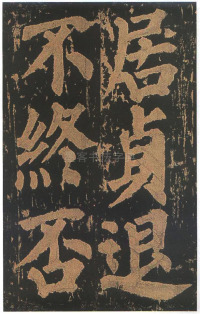 居貞退
不終否